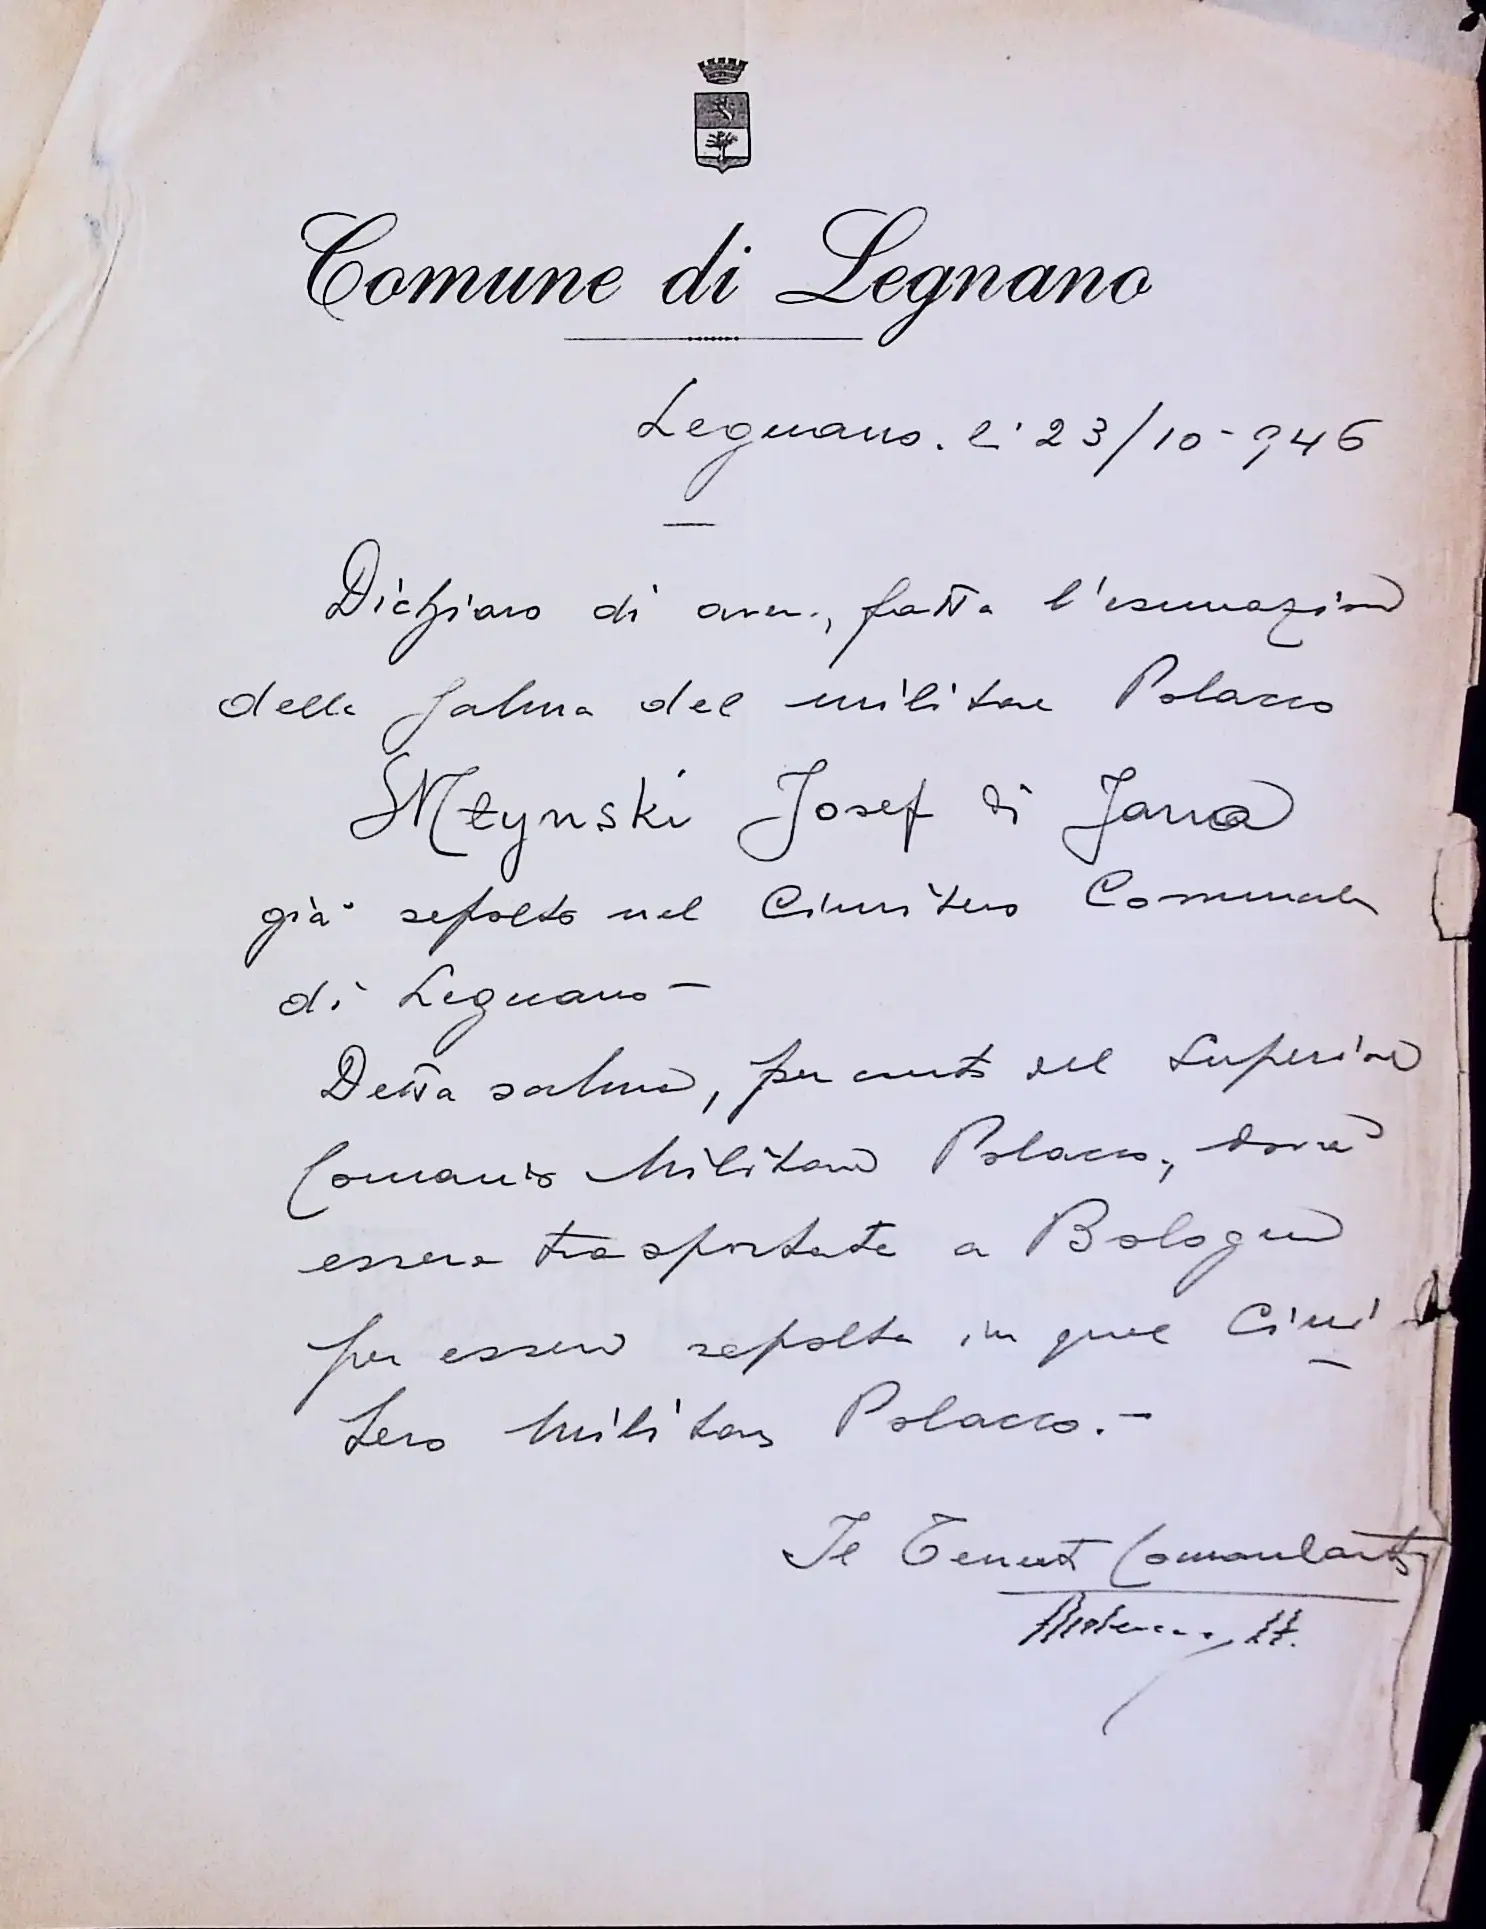 Comune di Legnano
Legnano. li 23/10-946
Dichiaro di aver, fatta l'esumazione
della Salma del militare Polacco
Młynski Josef di Jana
già sepolto nel Cimitero Comunale
di Legnano-
Detta salma, per conto del Superiore
Comando Militare Polacco, dovrà
essere trasportata a Bologna
per essere sepolta in quel Cimi
tero Militare Polacco.-
Il Tenent Comandante